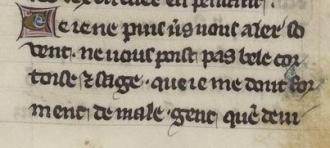 e ie ne puis uers uous aler so
uent. ne uous poist pas bele cor
toise ⁊ sage. que ie me dout for
ment. de male gent que deui